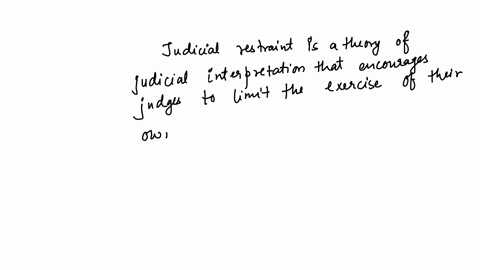 Judicial restraint is a theory of
judicial interpretation that encourages
judges to limit the exercise of their